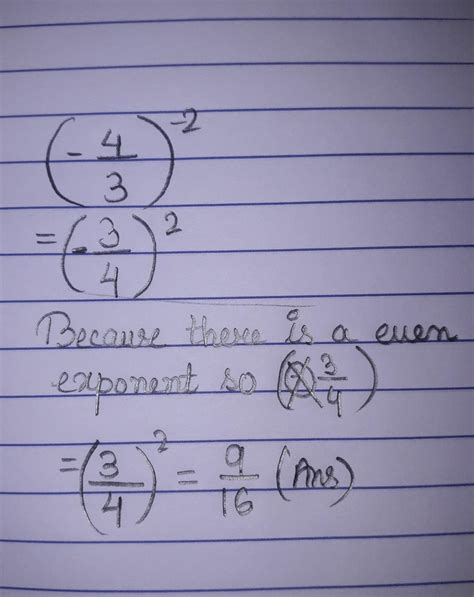 (-4/3)^-2
=(-3/4)^2
Because there is a even
exponent so (-3/4)
=(3/4)^2 = 9/16 (Ans)